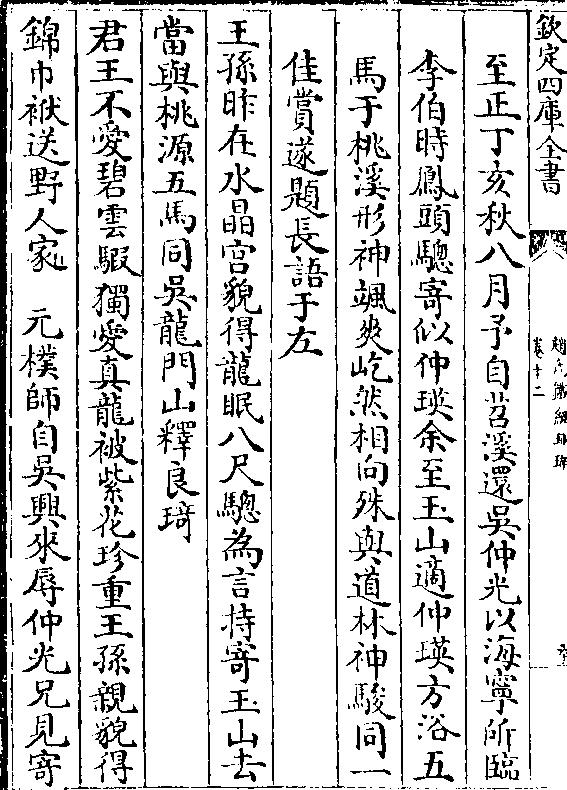 欽定四庫全書
趙氏鐵網珊瑚
卷十二
至正丁亥秋八月予自苕溪還吳仲光以海寧所臨
李伯時鳳頭驄寄似仲瑛余至玉山適仲瑛方浴五
馬于桃溪形神颯爽屹然相向殊與道林神駿同一
佳賞遂題長語于左
王孫昨在水晶宫貌得龍眠八尺驄為言持寄玉山去
當與桃源五馬同吳龍門山釋良琦
君王不愛碧雲騢獨愛真龍被紫花珍重王孫親貌得
錦巾袱送野人家　元樸師自吳興來辱仲光兄見寄